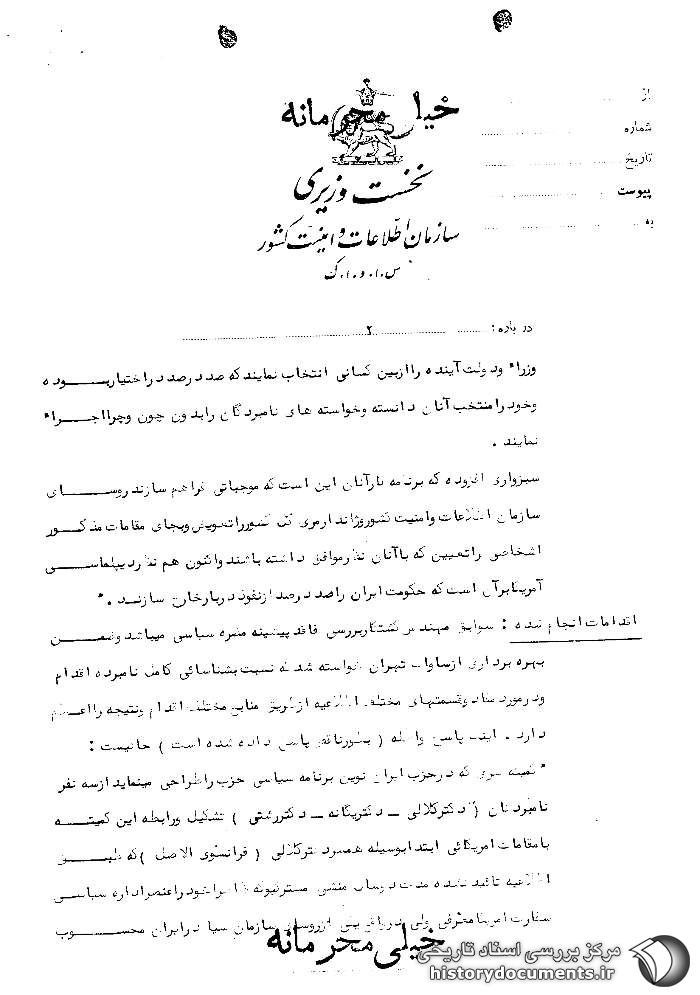 خیلی محرمانه
از
شماره
تاریخ
پیوست
به
نخست وزیری
سازمان اطلاعات و امنیت کشور
س.ا.و.ا.ک
در باره : ۲
وزراء ودولت آینده را ازبین کسانی انتخاب نمایند که صد درصد در اختیار بوده
وخود را منتخب آنان دانسته وخواسته های نامبردگان را بدون چون وچرا اجراء
نمایند .
سبزواری افزوده که برنامه کار آنان این است که موجباتی فراهم سازند روسای
سازمان اطلاعات وامنیت کشور وژاندارمری کل کشور را تعویض وبجای مقامات مذکور
اشخاصی را تعیین که با آنان نظر موافق داشته باشند واکنون هم نظر دیپلماسی
آمریکا بر آن است که حکومت ایران را صد درصد از نفوذ دربار خارج سازند . "
اقدامات انجام شده : سوابق مهندس بررسی فاقد پیشینه مضره سیاسی میباشد وضمن
بهره برداری از ساواک تهران خواسته شد که نسبت بشناسائی کامل نامبرده اقدام
ودر مورد مفاد وقسمتهای مختلف اطلاعیه از طریق منابع مختلف اقدام ونتیجه را اعلام
دارد . اینک پاسخ واصله ( بطور ناقص پاسخ داده شده است ) حاکیست :
" کمیته سری که در حزب ایران نوین برنامه سیاسی حزب را طراحی مینماید از سه نفر
نامبردگان ( دکتر کلالی - دکتر یگانه - دکتر رشتی ) تشکیل ورابطه این کمیته
با مقامات امریکائی ابتدا بوسیله همسر دکتر کلالی ( فرانسوی الاصل ) که طبق
اطلاعیه تائید شده مدت دوسال منشی مستر بوده ظاهرا خود را عضو اداره سیاسی
سفارت امریکا معرفی ولی در از روسای سازمان سیا در ایران محسوب
خیلی محرمانه
مرکز بررسی اسناد تاریخی
historydocuments.ir